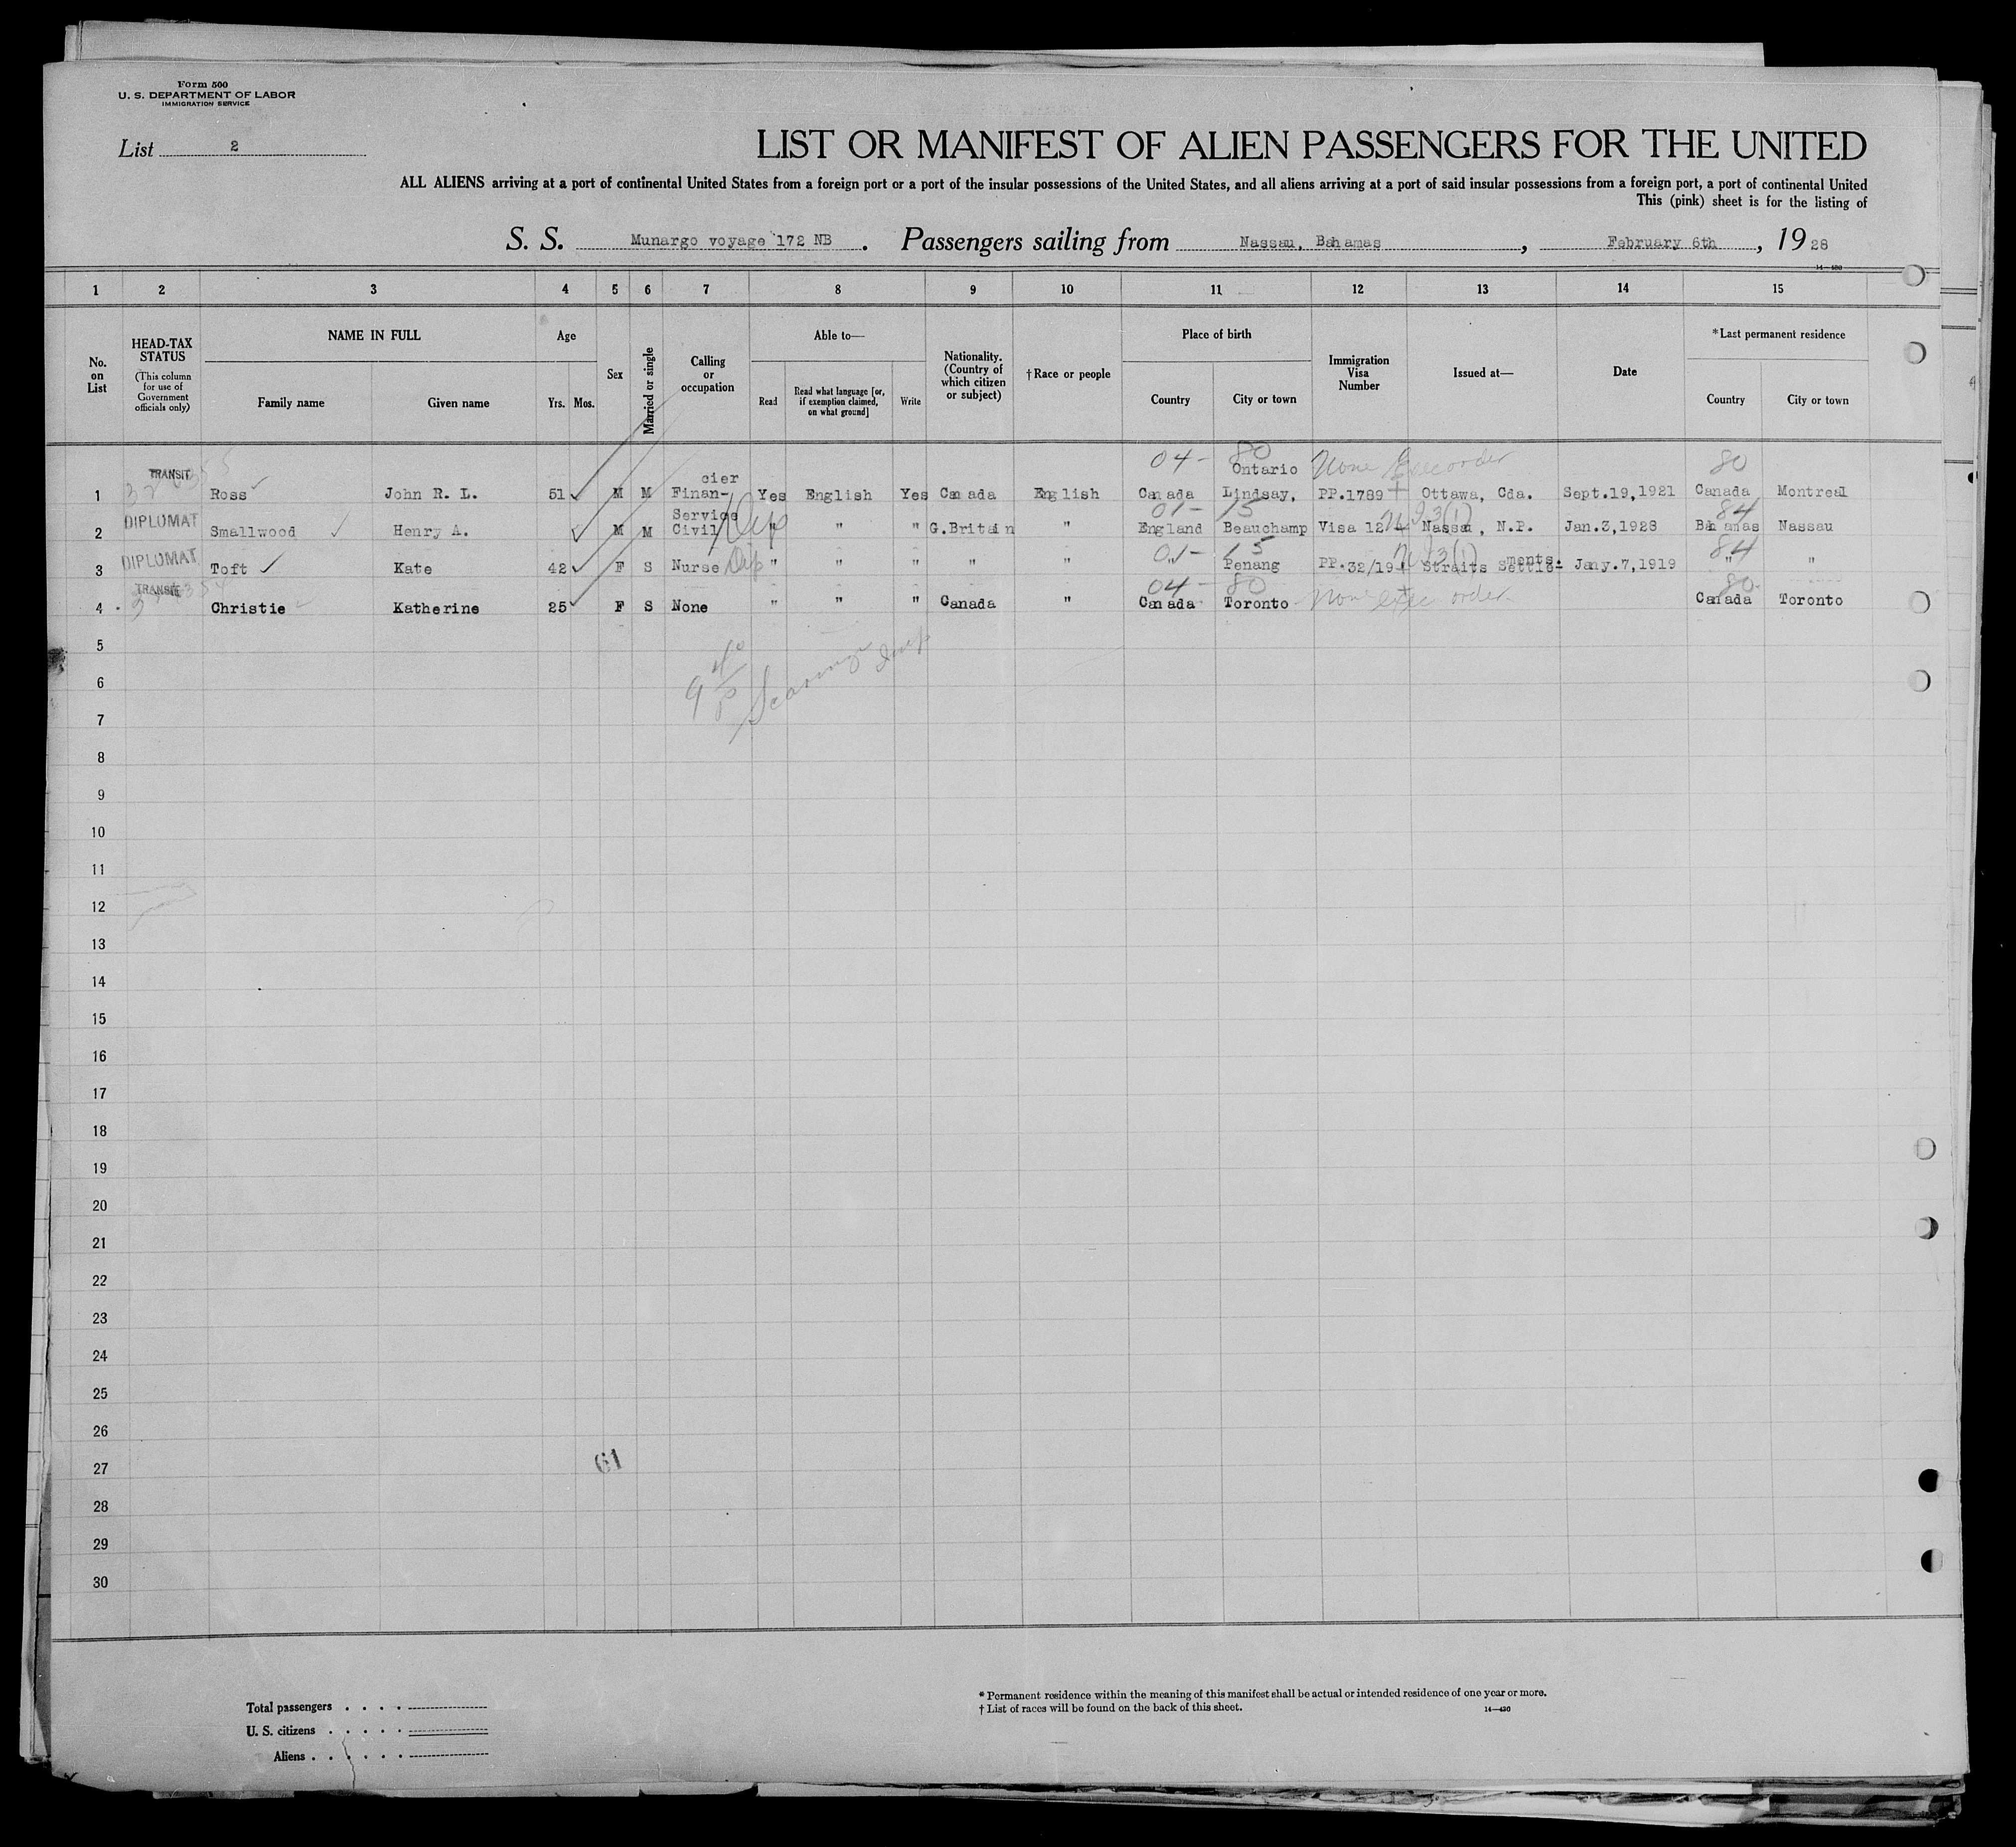 Form 500
U. S. DEPARTMENT OF LABOR
IMMIGRATION SERVICE
List 2
LIST OR MANIFEST OF ALIEN PASSENGERS FOR THE UNITED
ALL ALIENS arriving at a port of continental United States from a foreign port or a port of the insular possessions of the United States, and all aliens arriving at a port of said insular possessions from a foreign port, a port of continental United
This (pink) sheet is for the listing of
S. S. Munargo voyage 172 NB . Passengers sailing from Nassau, Bahamas , February 6th , 1928
14—430
1 2 3 4 5 6 7 8 9 10 11 12 13 14 15
No. on List
HEAD-TAX STATUS
(This column for use of Government officials only)
NAME IN FULL
Family name Given name
Age
Yrs. Mos.
Sex
Married or single
Calling or occupation
Able to—
Read
Read what language [or, if exemption claimed, on what ground]
Write
Nationality. (Country of which citizen or subject)
† Race or people
Place of birth
Country City or town
Immigration Visa Number
Issued at—
Date
* Last permanent residence
Country City or town
04- 80 None Exec order 80
1 TRANSIT Ross John R. L. 51 M M Finan-cier Yes English Yes Canada English Canada Lindsay, Ontario PP.1789 Ottawa, Cda. Sept.19,1921 Canada Montreal
01- 15 84
2 DIPLOMAT Smallwood Henry A. M M Civil Service " " " G.Britain " England Beauchamp Visa 12 Nassau, N.P. Jan.3,1928 Bahamas Nassau
01- 15 84
3 DIPLOMAT Toft Kate 42 F S Nurse " " " " " " Penang PP.32/19 Straits Settle-ments. Jany.7,1919 " "
04- 80 80
4 TRANSIT Christie Katherine 25 F S None " " " Canada " Canada Toronto None exec order Canada Toronto
5
6
7
8
9
10
11
12
13
14
15
16
17
18
19
20
21
22
23
24
25
26
61
27
28
29
30
Total passengers . . . .
U. S. citizens . . . . .
Aliens . . . . . .
* Permanent residence within the meaning of this manifest shall be actual or intended residence of one year or more.
† List of races will be found on the back of this sheet.
14—430